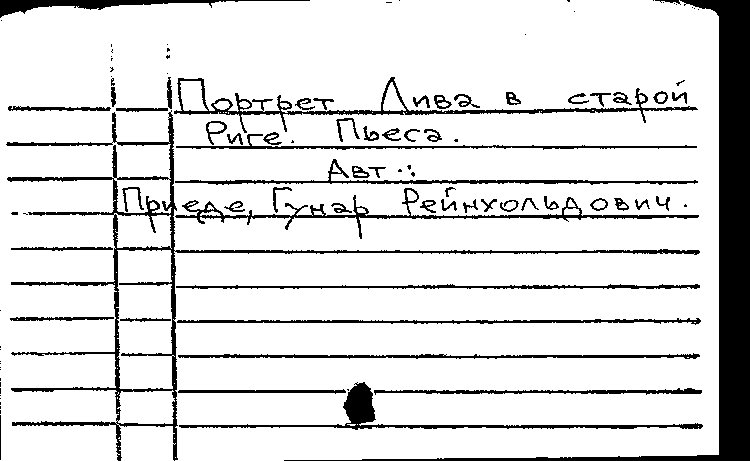 Портрет Лива в старой
Риге. Пьеса.
Авт.:
Приеде, Гунар Рейнхольдович.